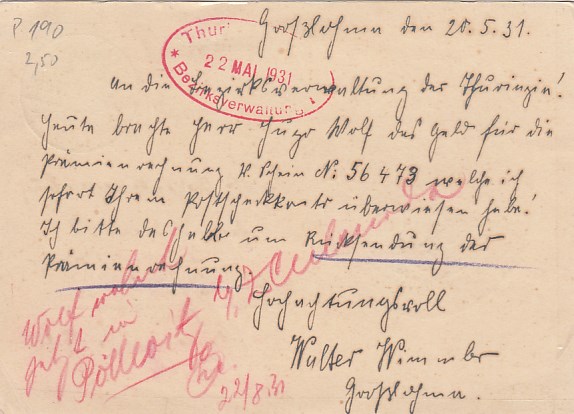 P 190
2,50
Großlohma den 20.5.31.
Thuri
22 MAI 1931
Bezirksverwaltung
An die Bezirksverwaltung der Thuringia!
Heute brachte Herr Hugo Wolf das Geld für die
Prämienrechnung V. Schein No. 56473 welche ich
sofort Ihrem Postscheckkonto überwiesen habe!
Ich bitte deshalb um Rücksendung der
Prämienrechnung.
Hochachtungsvoll
Walter Wimmler
Großlohma.
Wolf wohnt
jetzt in
Pöllwitz
22/8.31